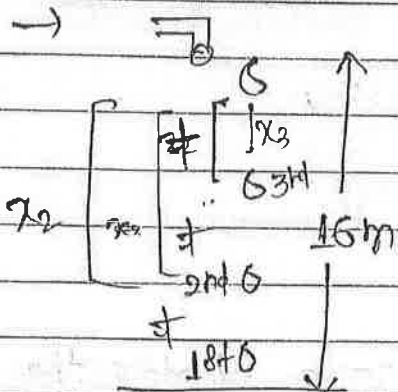 x3
3rd
x2
16m
2nd
t
1st